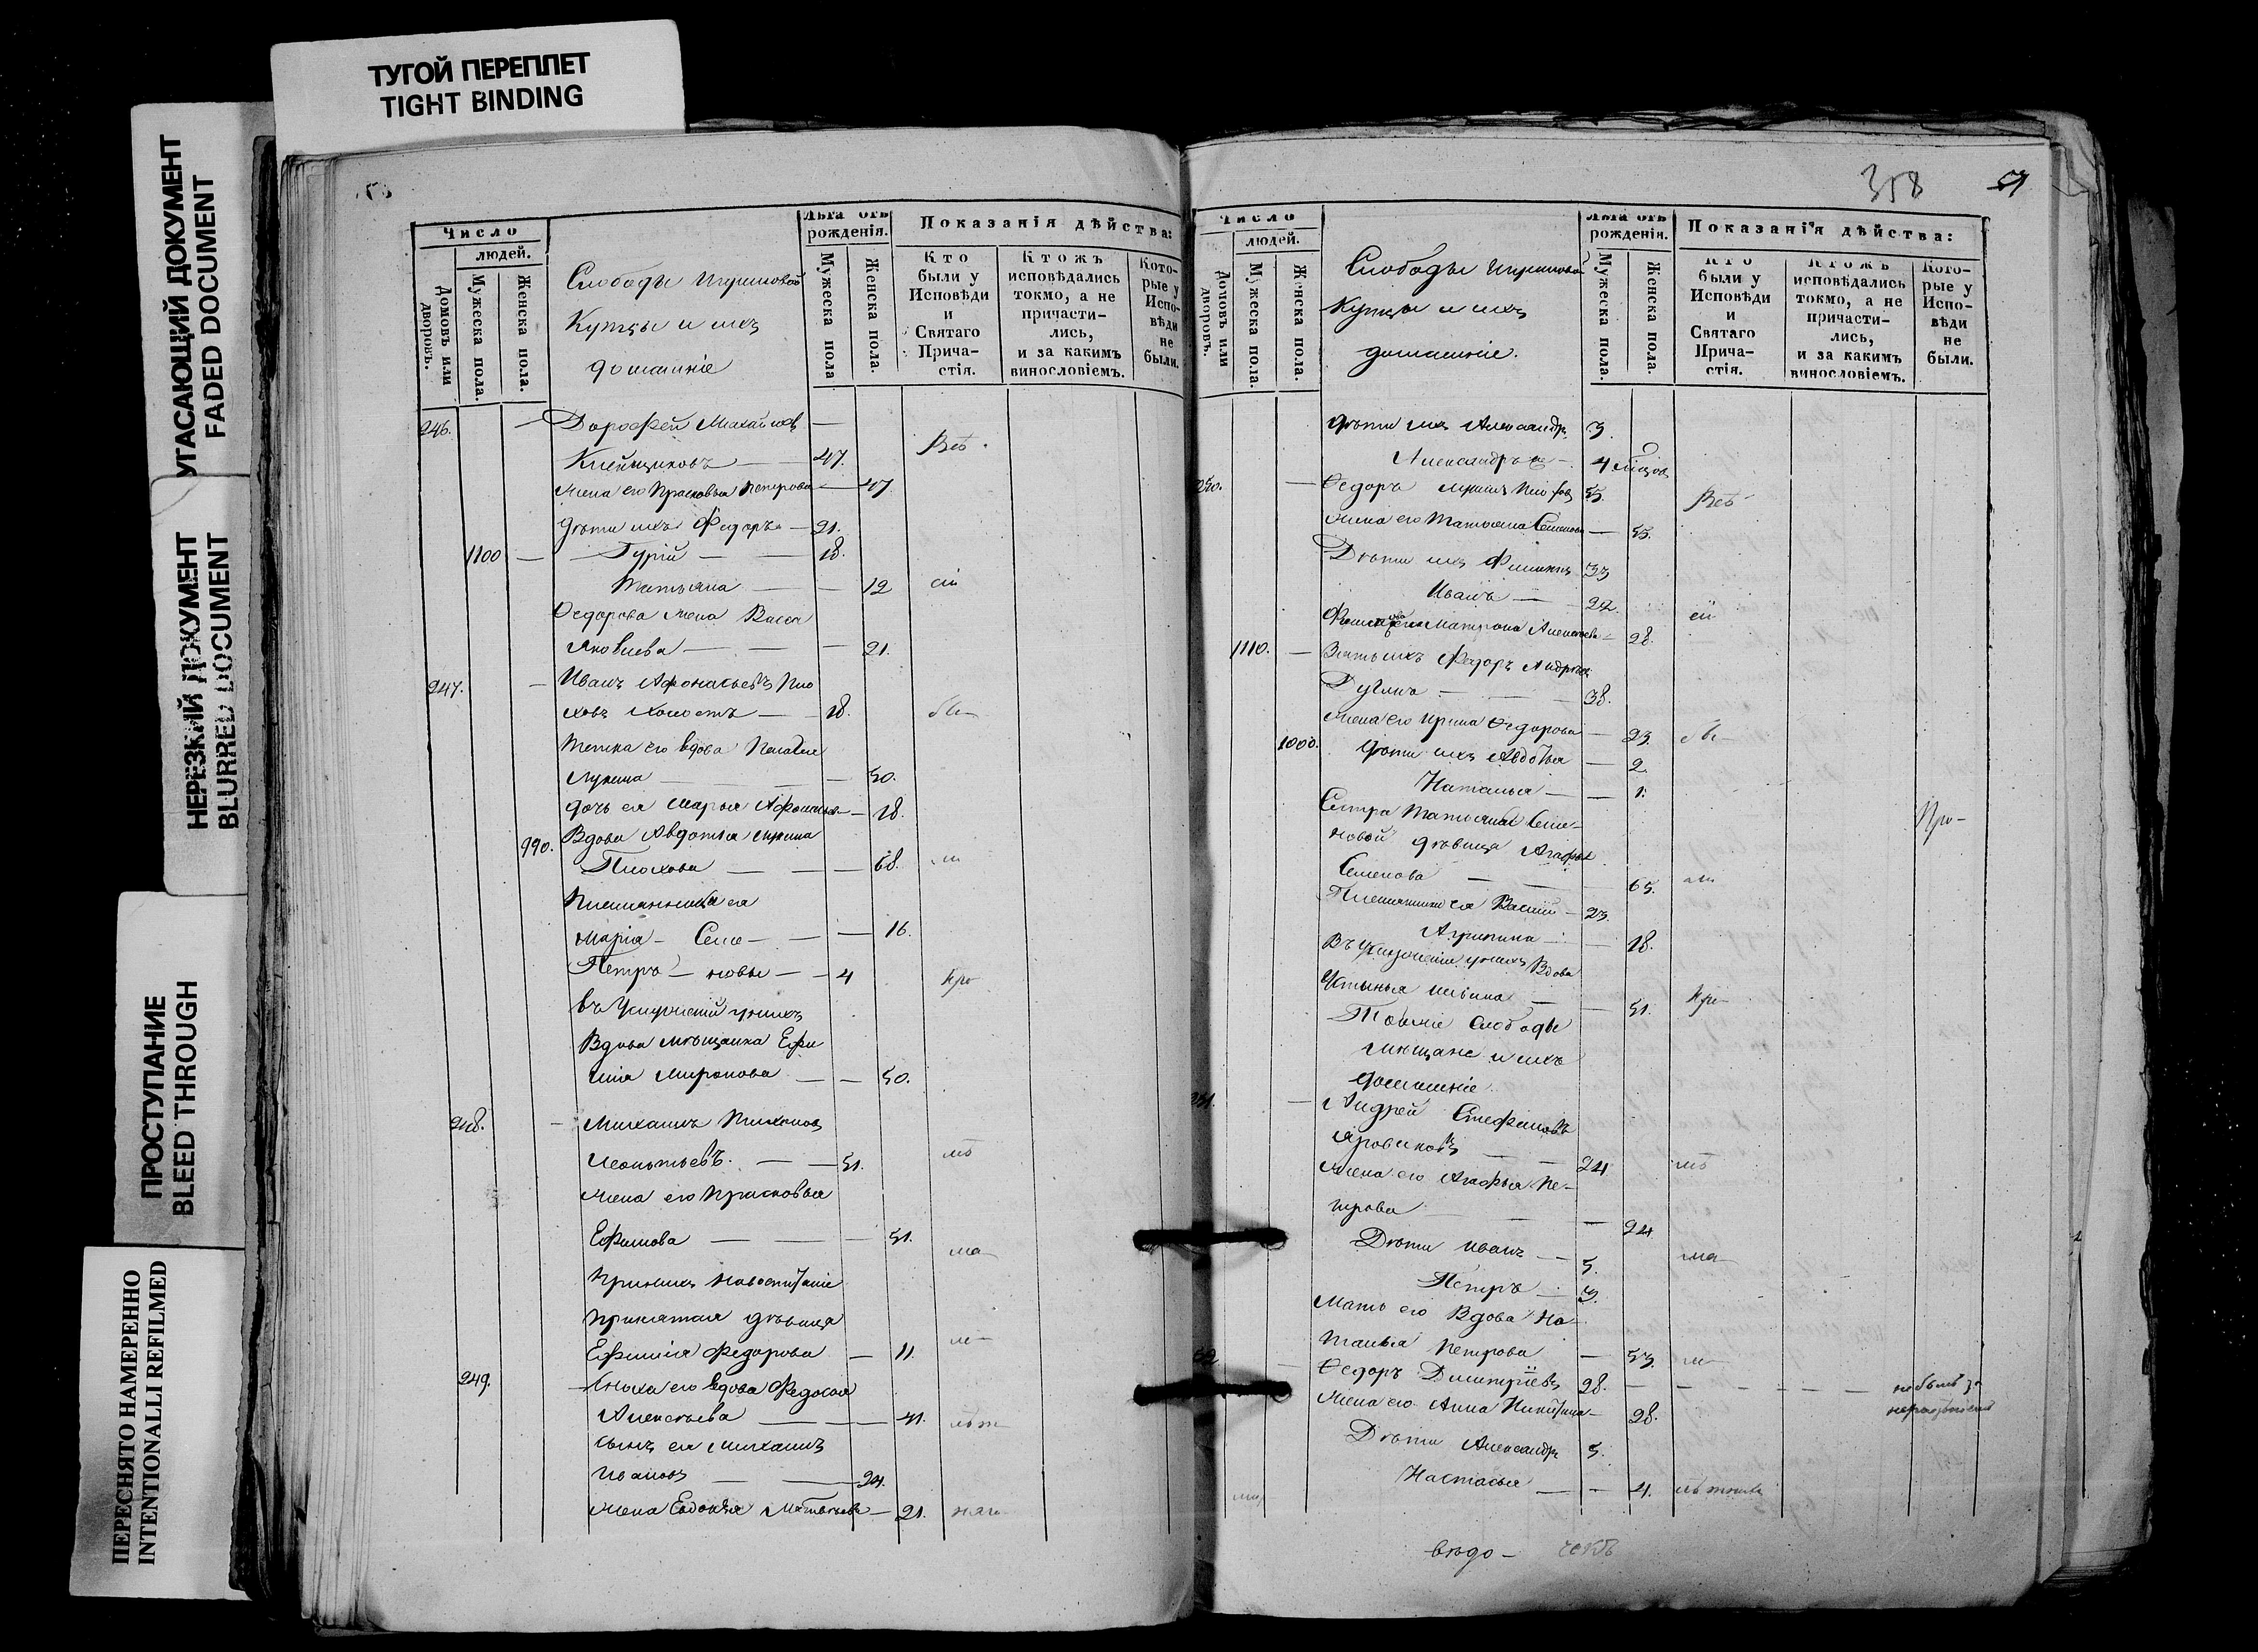 ТУГОЙ ПЕРЕПЛЕТ
TIGHT BINDING
УГАСАЮЩИЙ ДОКУМЕНТ
FADED DOCUMENT
НЕРЕЗКИЙ ДОКУМЕНТ
BLURRED DOCUMENT
ПРОСТУПАНИЕ
BLEED THROUGH
ПЕРЕСНЯТО НАМЕРЕННО
INTENTIONALLI REFILMED
Число
людей.
Домовъ или дворовъ.
Мужеска пола.
Женска пола.
Слободы
Купцы и ихъ
домашніе
Лѣта отъ рожденія.
Мужеска пола
Женска пола.
Показанія дѣйства:
Кто были у Исповѣди и Святаго Прича-стія.
Ктожъ исповѣдались токмо, а не причасти-лись, и за какимъ винословіемъ.
Кото-рые у Испо-вѣди не были.
246. Дорофей Михайловъ
Клейщиковъ — 47. Всѣ
Жена его Прасковья Петрова — 47
Дѣти ихъ Федоръ — 21.
1100 — Гурій — 18.
Татьяна — 12 сіи
Ѳедорова жена Васса
Яковлева — 21.
247. Иванъ Афонасьевъ Пло
ховъ холостъ — 18. бы
Тетка его вдова Пелагея
Лукина — 50.
дочь ея Марья — 18.
990. Вдова Авдотья
Плохова — 68. ли
Племянница ея
Марія — Семе — 16.
Петръ — новы — 4
въ услуженіи у нихъ
Вдова мѣщанка Ефи
мія Миронова — 50.
248. Михаилъ Тихоновъ
Леонтьевъ. — 51.
Жена его Прасковья
Ефимова — 51.
принятая дѣвица
Ефимія Федорова — 11.
249. Сноха его вдова Федосья
Алексѣева — 41.
сынъ ея Михаилъ
Ивановъ — 24.
жена Евдокія Матвѣева — 21.
358
Число
людей.
Домовъ или дворовъ.
Мужеска пола.
Женска пола.
Слободы
Купцы и ихъ
домашніе.
Лѣта отъ рожденія.
Мужеска пола.
Женска пола.
Показанія дѣйства:
Кто были у Исповѣди и Святаго Прича-стія.
Ктожъ исповѣдались токмо, а не причасти-лись, и за какимъ винословіемъ.
Кото-рые у Испо-вѣди не были.
дѣти ихъ Александръ 3.
4
250. Ѳедоръ 55. Всѣ
Жена его Татьяна Семенова — 55.
Дѣти ихъ Филиппъ 33
Иванъ — 22. сіи
Матрона Алексѣева — 28.
1110. — Зять ихъ Федоръ Андреевъ
38.
Жена его Ирина Ѳедорова — 23. бы
1000. дѣти ихъ Авдотья — 2.
Наталья — 1.
Сестра Татьяны Семе-
новой дѣвица Агафья
Семенова — 65. ли
Племянники ея Василій — 23.
Агрипина — 18.
Въ услуженіи у нихъ Вдова
Устинья — 51.
Тойже Слободы
мѣщане и ихъ
домашніе.
251. Андрей Стефановъ
24.
Жена его Агафья Пе-
трова — 24
Дѣти Иванъ — 5.
Петръ — 3.
Мать его Вдова На-
талья Петрова — 53.
52 Ѳедоръ Димитріевъ 28. — не былъ за
Жена его Анна Никитина — 28.
Дѣти Александръ 5.
Настасья — 4.
вѣдо-